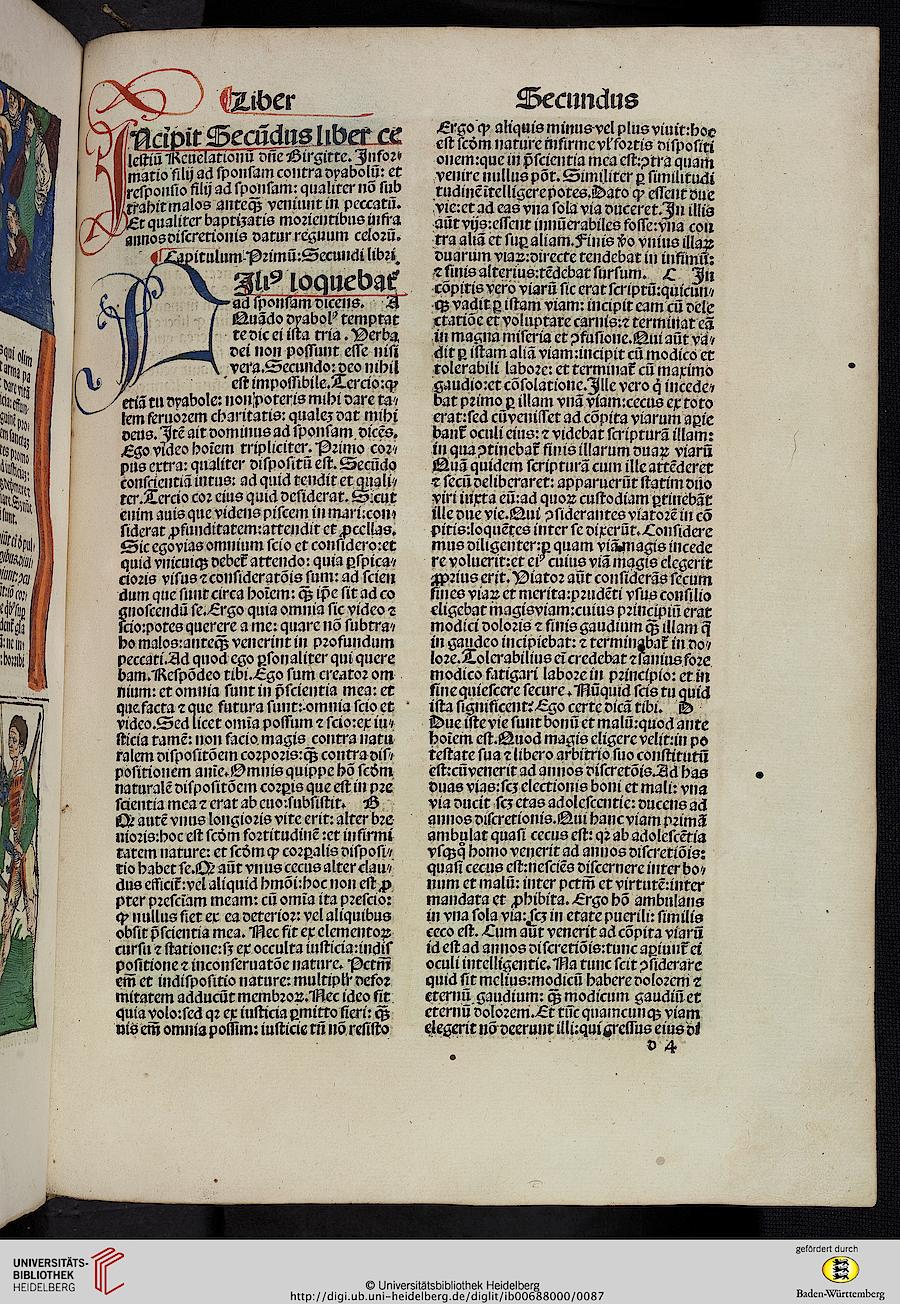 Liber
Secundus
Incipit Secūdus liber ce
lestiū Reuelationū dn̄e Birgitte. Infor⸗
matio filij ad sponsam contra dyabolū: et
responsio filij ad sponsam: qualiter nō sub
trahit malos anteq̄ȝ veniunt in peccatū.
Et qualiter baptizatis morientibus infra
annos discretionis datur regnum celorū.
Capitulum Primū: Secundi libri.
Iliꝰ loquebat᷑
ad sponsam dicens. A
Quādo dyabolꝰ temptat
te dic ei ista tria. Verba
dei non possunt esse nisi
vera. Secundo: deo nihil
est impossibile. Tercio: ꝙ
etiā tu dyabole: non poteris mihi dare ta⸗
lem feruorem charitatis: qualeȝ dat mihi
deus. Itē ait dominus ad sponsam dicēs.
Ego video hoīem tripliciter. Primo cor⸗
pus extra: qualiter dispositū est. Secūdo
conscientiā intus: ad quid tendit et quali⸗
ter. Tercio cor eius quid desiderat. Sicut
enim auis que videns piscem in mari: con⸗
siderat ꝓfunditatem: attendit et ꝓcellas.
Sic ego vias omnium scio et considero: et
quid vnicuiqȝ debet᷑ attendo: quia ꝑspica⸗
cioris visus ⁊ consideratōis sum: ad scien
dum que sunt circa hoīem: q̄ȝ ip̄e sit ad co
gnoscendū se. Ergo quia omnia sic video ⁊
scio: potes querere a me: quare nō subtra⸗
ho malos: anteq̄ȝ venerint in profundum
peccati. Ad quod ego ꝑsonaliter qui quere
bam. Respōdeo tibi. Ego sum creator om
nium: et omnia sunt in p̄scientia mea: et
que facta ⁊ que futura sunt: omnia scio et
video. Sed licet om̄ia possum ⁊ scio: ex iu⸗
sticia tamē: non facio magis contra natu
ralem dispositōem corporis: q̄ȝ contra dis⸗
positionem anīe. Omnis quippe hō scd̄m
naturalē dispositōem corꝑis que est in pre
scientia mea ⁊ erat ab euo: subsistit. B
Qꝛ autē vnus longioris vite erit: alter bre
uioris: hoc est scd̄m fortitudinē: et infirmi
tatem nature: et scd̄m ꝙ corꝑalis disposi⸗
tio habet se. Qꝛ aūt vnus cecus alter clau⸗
dus efficit᷑: vel aliquid hmōi: hoc non est ꝓ
pter presciam meam: cū omia ita prescio:
ꝙ nullus fiet ex ea deterior: vel aliquibus
obsit p̄scientia mea. Nec fit ex elementoꝝ
cursu ⁊ statione: sȝ ex occulta iusticia: indis
positione ⁊ inconseruatōe nature. Pctm̄
em̄ et indispositio nature: multipłr defor
mitatem adducūt membroꝝ. Nec ideo fit
quia volo: sed qꝛ ex iusticia ꝑmitto fieri: q̄ȝ
uis em̄ omnia possim: iusticie tn̄ nō resisto
Ergo ꝙ aliquis minus vel plus viuit: hoc
est scd̄m nature infirme vł fortis dispositi
onem: que in p̄scientia mea est: ꝯtra quam
venire nullus pōt. Similiter ꝑ similitudi
tudinē ītelligere potes. Dato ꝙ essent due
vie: et ad eas vna sola via duceret. In illis
aūt vijs: essent innūerabiles fosse: vna con
tra aliā et suꝑ aliam. Finis v̊o vnius illaꝝ
duarum viaꝝ: directe tendebat in infimū:
⁊ finis alterius: tēdebat sursum. C In
cōpitis vero viarū sic erat scriptū: quicun⸗
qȝ vadit ꝑ istam viam: incipit eam cū dele
ctatiōe et voluptate carnis: ⁊ terminat eā
in magna miseria et ꝯfusione. Qui aūt va⸗
dit ꝑ istam aliā viam: incipit cū modico et
tolerabili labore: et terminat᷑ cū maximo
gaudio: et cōsolatione. Ille vero q̇ incede⸗
bat primo ꝑ illam vnā viam: cecus ex toto
erat: sed cū venisset ad cōpita viarum aꝑie
bant᷑ oculi eius: ⁊ videbat scripturā illam:
in qua ꝯtinebat᷑ finis illarum duaꝝ viarū
Quā quidem scripturā cum ille attēderet
⁊ secū deliberaret: apparuerūt statim duo
viri iuxta eū: ad quoꝝ custodiam ꝑtinebāt
ille due vie. Qui ꝯsiderantes viatorē in cō
pitis: loquētes inter se dixerūt. Considere
mus diligenter: ꝑ quam viā magis incede
re voluerit: et eiꝰ cuius viā magis elegerit
ꝓprius erit. Viator aūt considerās secum
fines viaꝝ et merita: prudēti vsus consilio
eligebat magis viam: cuius principiū erat
modici doloris ⁊ finis gaudium q̄ȝ illam q̄
in gaudeo incipiebat: ⁊ terminabat᷑ in do⸗
lore. Tolerabilius ei credebat ⁊ sanius fore
modico fatigari labore in principio: et in
fine quiescere secure. Nūquid scis tu quid
ista significent? Ego certe dicā tibi. D
Due iste vie sunt bonū et malū: quod ante
hoīem est. Quod magis eligere velit: in po
testate sua ⁊ libero arbitrio suo constitutū
est: cū venerit ad annos discretōis. Ad has
duas vias: scȝ electionis boni et mali: vna
via ducit scȝ etas adolescentie: ducens ad
annos discretionis. Qui hanc viam primā
ambulat quasi cecus est: qꝛ ab adolescētia
vsqȝ q̊ homo venerit ad annos discretiōis:
quasi cecus est: nesciēs discernere inter bo⸗
num et malū: inter pctm̄ et virtutē: inter
mandata et ꝓhibita. Ergo hō ambulans
in vna sola via: scȝ in etate puerili: similis
ceco est. Cum aūt venerit ad cōpita viarū
id est ad annos discretiōis: tunc aꝑiunt᷑ ei
oculi intelligentie. Na tunc scit ꝯsiderare
quid sit melius: modicū habere dolorem ⁊
eternū gaudium: q̄ȝ modicum gaudiū et
eternū dolorem. Et tūc quamcunqȝ viam
elegerit nō deerunt illi: qui gressus eius di
d 4
UNIVERSITÄTS-
BIBLIOTHEK
HEIDELBERG
© Universitätsbibliothek Heidelberg
http://digi.ub.uni-heidelberg.de/diglit/ib00688000/0087
gefördert durch
Baden-Württemberg